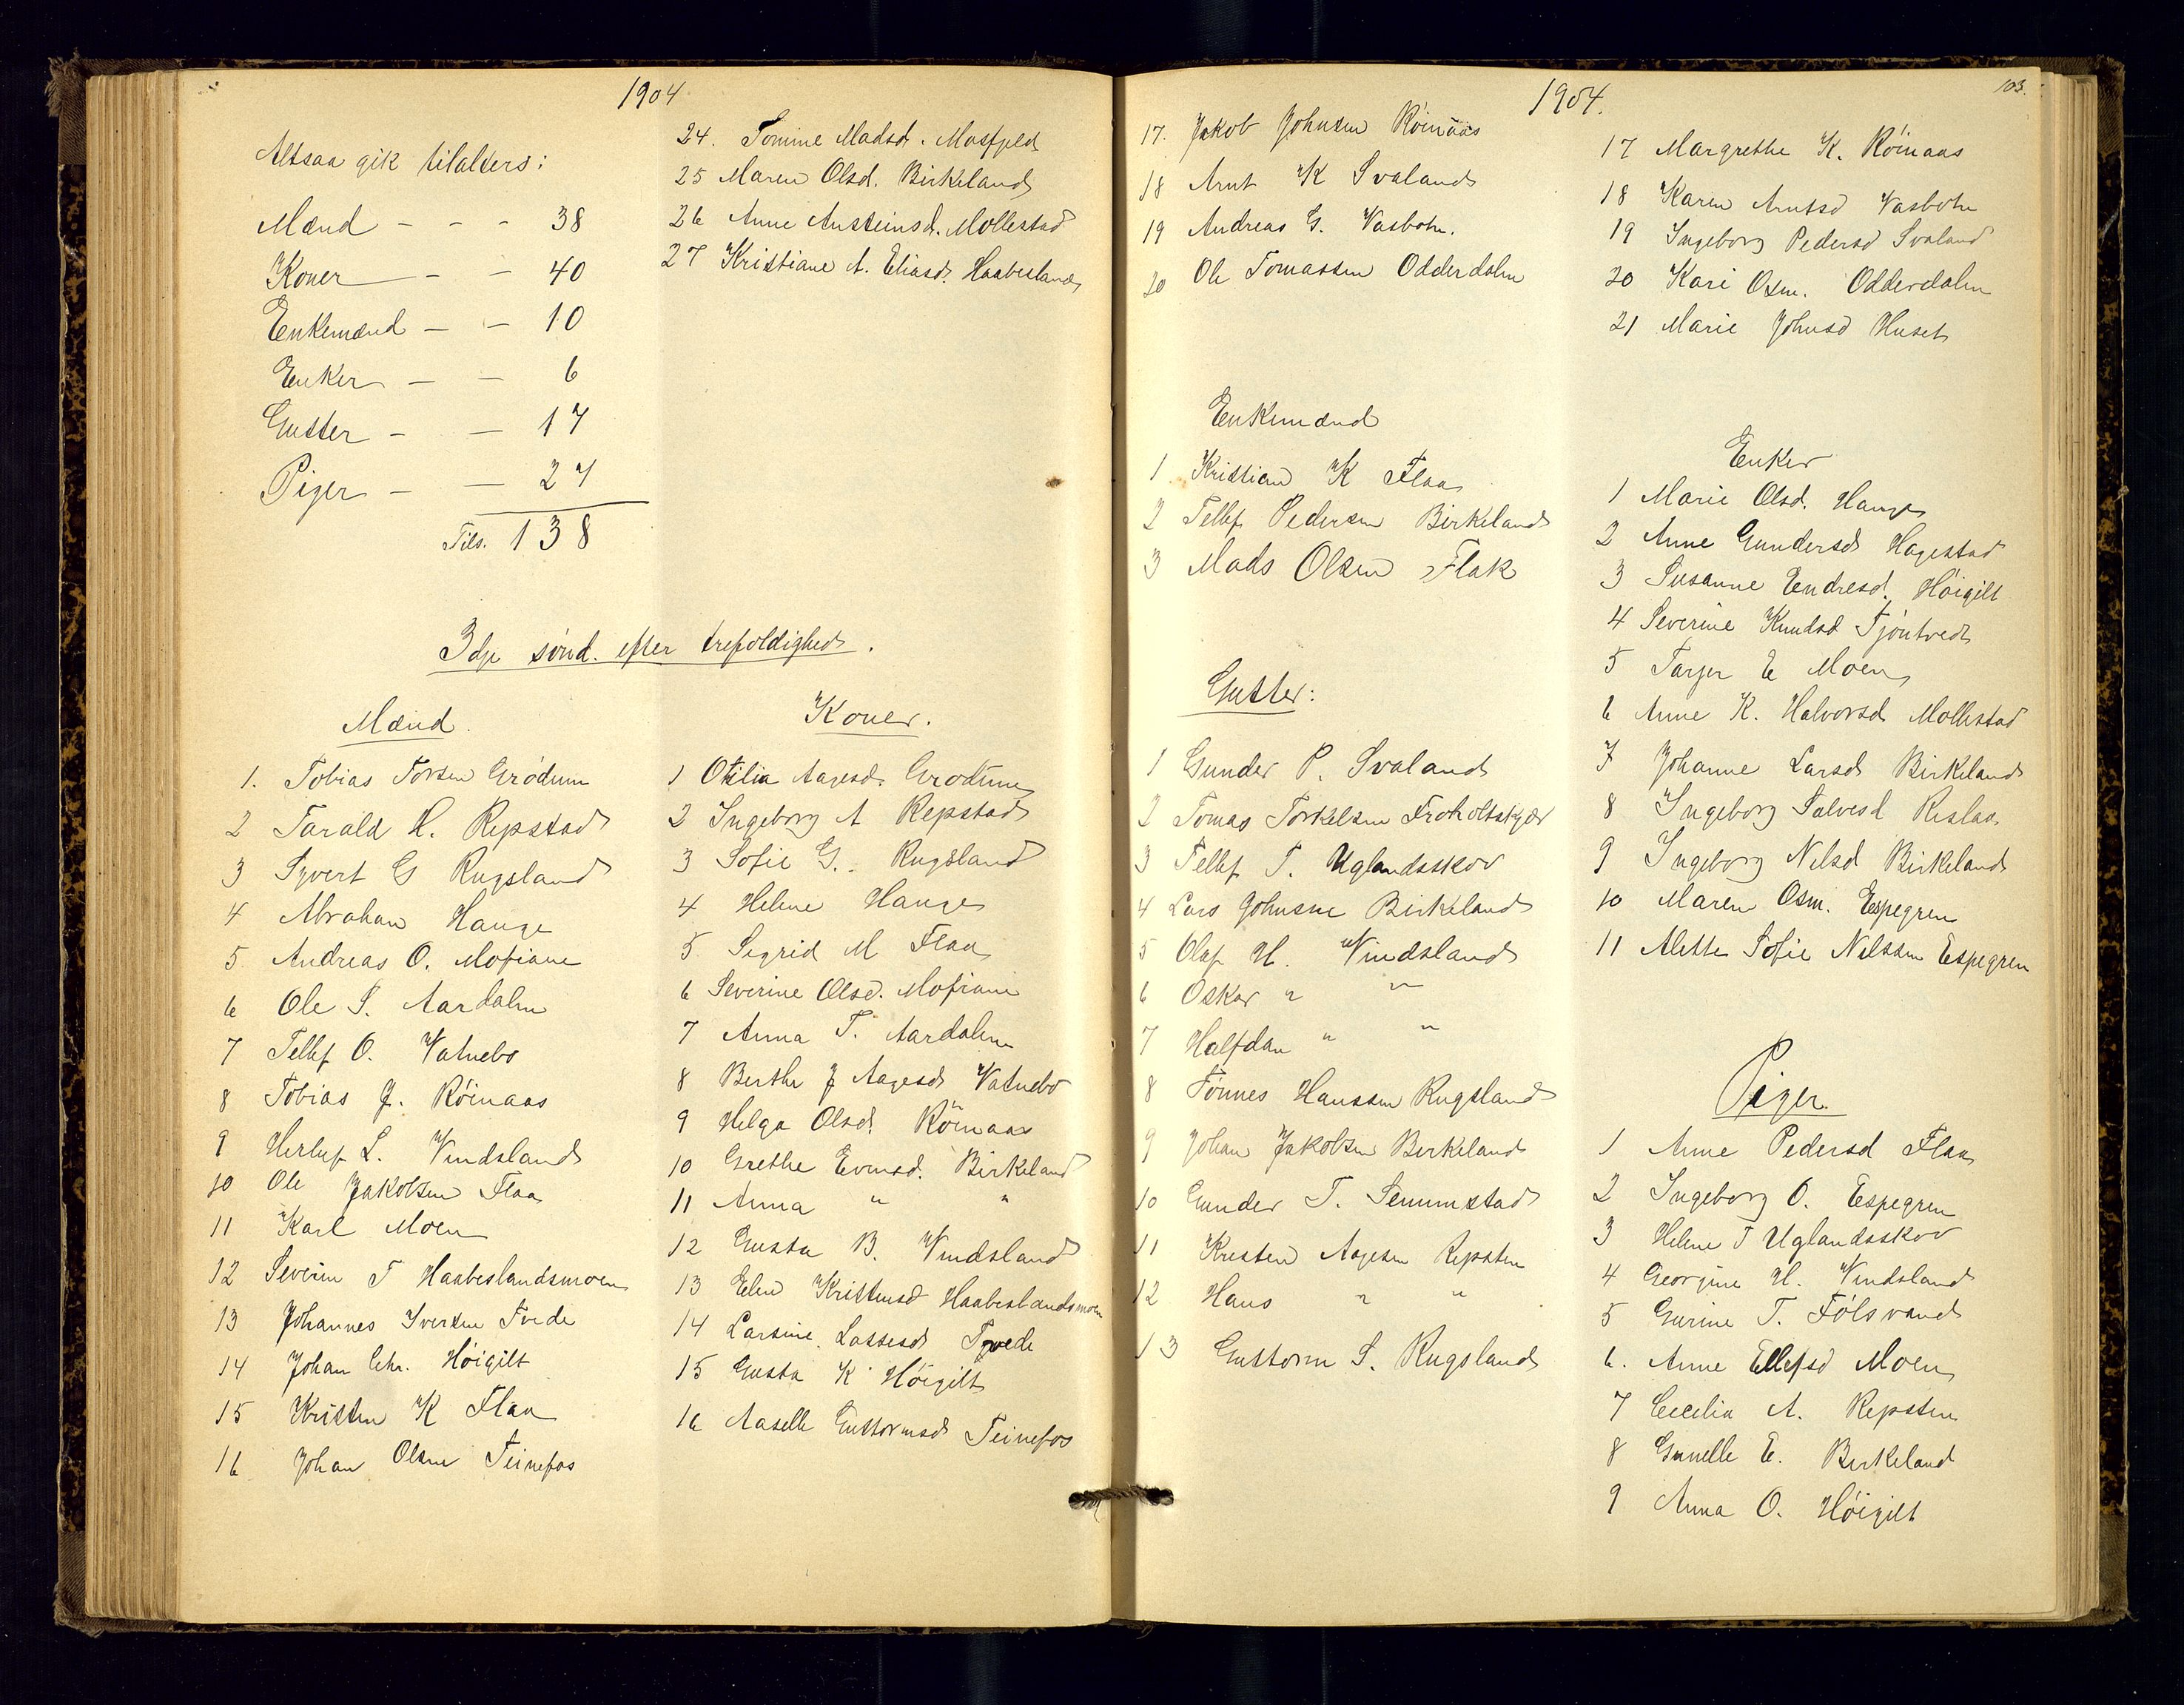 1904
Altsaa gik tilalters:
Mænd - - - 38
Koner - - 40
Enkemænd - - 10
Enker - - 6
Gutter - - 17
Piger - - 27
Tils. 138
24. Tomine Madsd. Mosfjeld
25 Maren Olsd. Birkeland
26 Anne Austeinsd. Mollestad
27 Kristiane A. Eliasd. Haabesland
3dje sönd. efter trefoldighed.
Mænd.
1. Tobias Torsen Grödum
2 Tarald K. Repstad
3 Syvert G Rugsland
4 Abraham Hauge
5 Andreas O. Mofiane
6 Ole S. Aardalen
7 Tellef O. Vatnebo
8 Tobias J. Röinaas
9 Herluf L. Vindsland
10 Ole Jakobsen Flaa
11 Karl Moen
12 Severin T Haabeslandsmoen
13 Johannes Iversen Tvede
14 Johan Chr. Höigilt
15 Kristen K Flaa
16 Johan Olsen Teinefos
Koner.
1 Otilia Aagesd. Grödum
2 Ingeborg A Repstad
3 Sofie G. Rugsland
4 Helene Hauge
5 Sigrid M Flaa
6 Severine Olsd. Mofiane
7 Anna T. Aardalen
8 Berthe J Aagesd Vatnebo
9 Helga Olsd. Röinaas
10 Grethe Evensd. Birkeland
11 Anna " "
12 Gusta B. Vindsland
13 Elen Kristensd Haabeslandsmoen
14 Larsine Lassesd Tvede
15 Gusta K Höigilt
16 Aaselle Guttormsd Teinefos
1904.
103.
17. Jakob Johnsen Röinaas
18 Arnt K Svaland
19 Andreas G. Vasbotn.
20 Ole Tomassen Odderdalen
Enkemænd
1 Kristian K Flaa
2 Tellef Pedersen Birkeland
3 Mads Olsen Flak
Gutter:
1 Gunder P. Svaland
2 Tomas Torkelsen Froholtskjær
3 Tellef T. Uglandsskov
4 Lars Johnsen Birkeland
5 Olaf H. Vindsland
6 Oskar " "
7 Halfdan " "
8 Tönnes Hanssen Rugsland
9 Johan Jakobsen Birkeland
10 Gunder T. Senumstad
11 Kristen Aagesen Repsten
12 Hans " "
13 Guttorm S. Rugsland
17 Margrethe K. Röinaas
18 Karen Arntsd Vasbotn
19 Ingeborg Pedersd Svaland
20 Kari Osm. Odderdalen
21 Marie Johnsd Huset
Enker
1 Marie Olsd. Hauge
2 Anne Gundersd Hagestad
3 Susanne Endresd. Höigilt
4 Severine Knudsd Tjöntvedt
5 Tarjer E Moen
6 Anne K. Halvorsd Mollestad
7 Johanne Larsd Birkeland
8 Ingeborg Salvesd Rislaa
9 Ingeborg Nilsd Birkeland
10 Maren Osm. Espegren
11 Alette Sofie Nilssen Espegren
Piger.
1 Anne Pedersd Flaa
2 Ingeborg O. Espegren
3 Helene T Uglandsskov
4 Georgine H. Vindsland
5 Gurine T. Fölsvand
6. Anne Ellefsd Moen
7 Cecelia A. Repsten
8 Gunelle E. Birkeland
9 Anna O. Höigilt